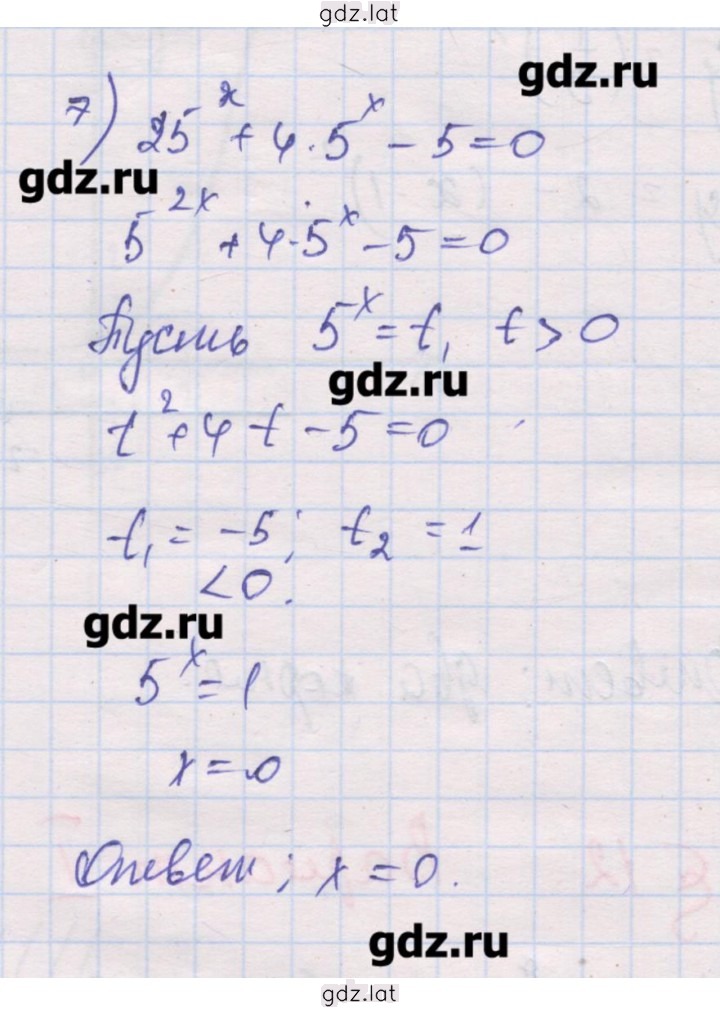 gdz.lat
gdz.ru
7) 25^x + 4·5^x − 5 = 0
gdz.ru
5^2x + 4·5^x − 5 = 0
Пусть 5^x = t, t > 0
gdz.ru
t^2 + 4t − 5 = 0
t₁ = −5; t₂ = 1
< 0.
gdz.ru
5^x = 1
x = 0
Ответ; x = 0.
gdz.ru
gdz.lat